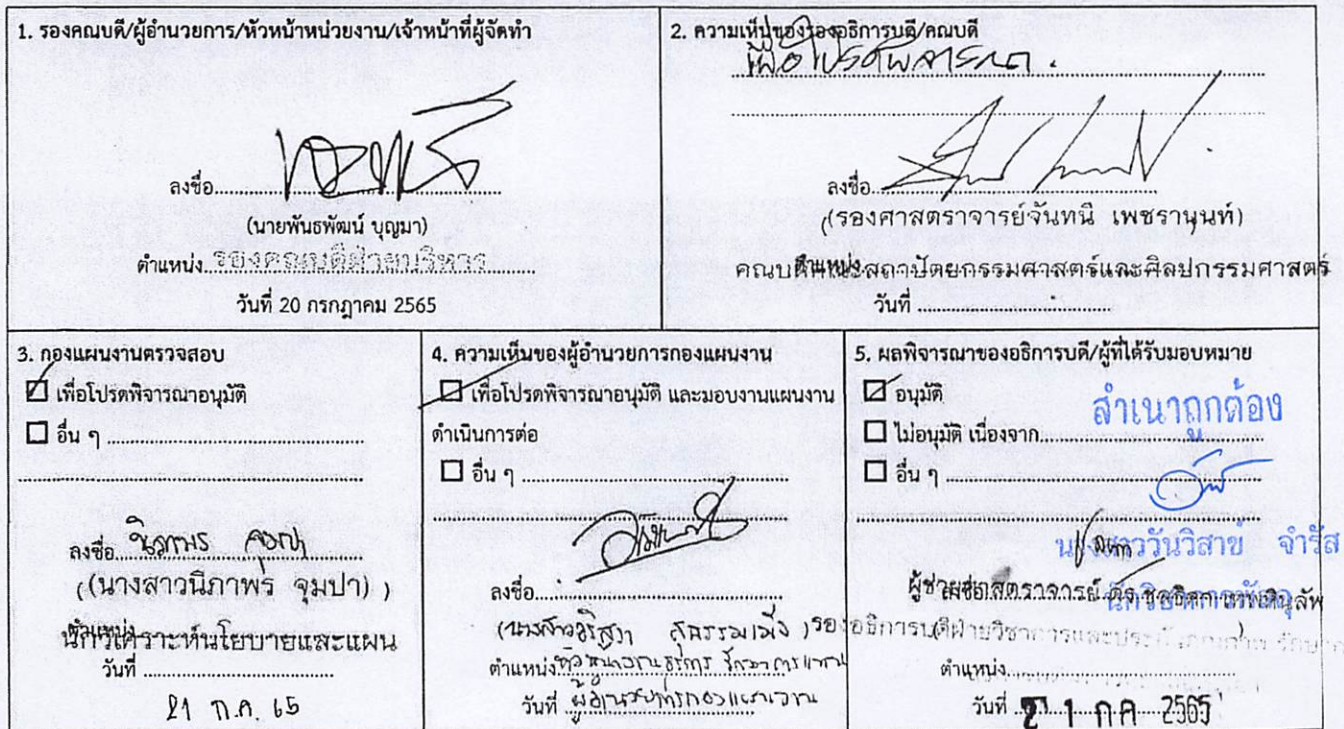 1. รองคณบดี/ผู้อำนวยการ/หัวหน้าหน่วยงาน/เจ้าหน้าที่ผู้จัดทำ
ลงชื่อ
(นายพันธพัฒน์ บุญมา)
ตำแหน่ง รองคณบดีฝ่ายบริหาร
วันที่ 20 กรกฎาคม 2565
2. ความเห็นของรองอธิการบดี/คณบดี
เพื่อโปรดพิจารณา.
ลงชื่อ
(รองศาสตราจารย์จันทนี เพชรานนท์)
คณบดีคณะสถาปัตยกรรมศาสตร์และศิลปกรรมศาสตร์
วันที่
3. กองแผนงานตรวจสอบ
เพื่อโปรดพิจารณาอนุมัติ
อื่น ๆ
ลงชื่อ นิภาพร จุมปา
(นางสาวนิภาพร จุมปา)
นักวิเคราะห์นโยบายและแผน
วันที่
21 ก.ค. 65
4. ความเห็นของผู้อำนวยการกองแผนงาน
เพื่อโปรดพิจารณาอนุมัติ และมอบงานแผนงาน
ดำเนินการต่อ
อื่น ๆ
ลงชื่อ
(นางสาว
ตำแหน่ง หัวหน้างานธุรการ รักษาการแทน
วันที่ ผู้อำนวยการกองแผนงาน
5. ผลพิจารณาของอธิการบดี/ผู้ที่ได้รับมอบหมาย
อนุมัติ
สำเนาถูกต้อง
ไม่อนุมัติ เนื่องจาก
อื่น ๆ
นางสาววันวิสาข์ จำรัส
นักวิชาการพัสดุ
ลงชื่อ
ผู้ช่วยศาสตราจารย์ ดร.
รองอธิการบดีฝ่ายวิชาการและประกันคุณภาพ
ตำแหน่ง
วันที่ 21 กค 2565